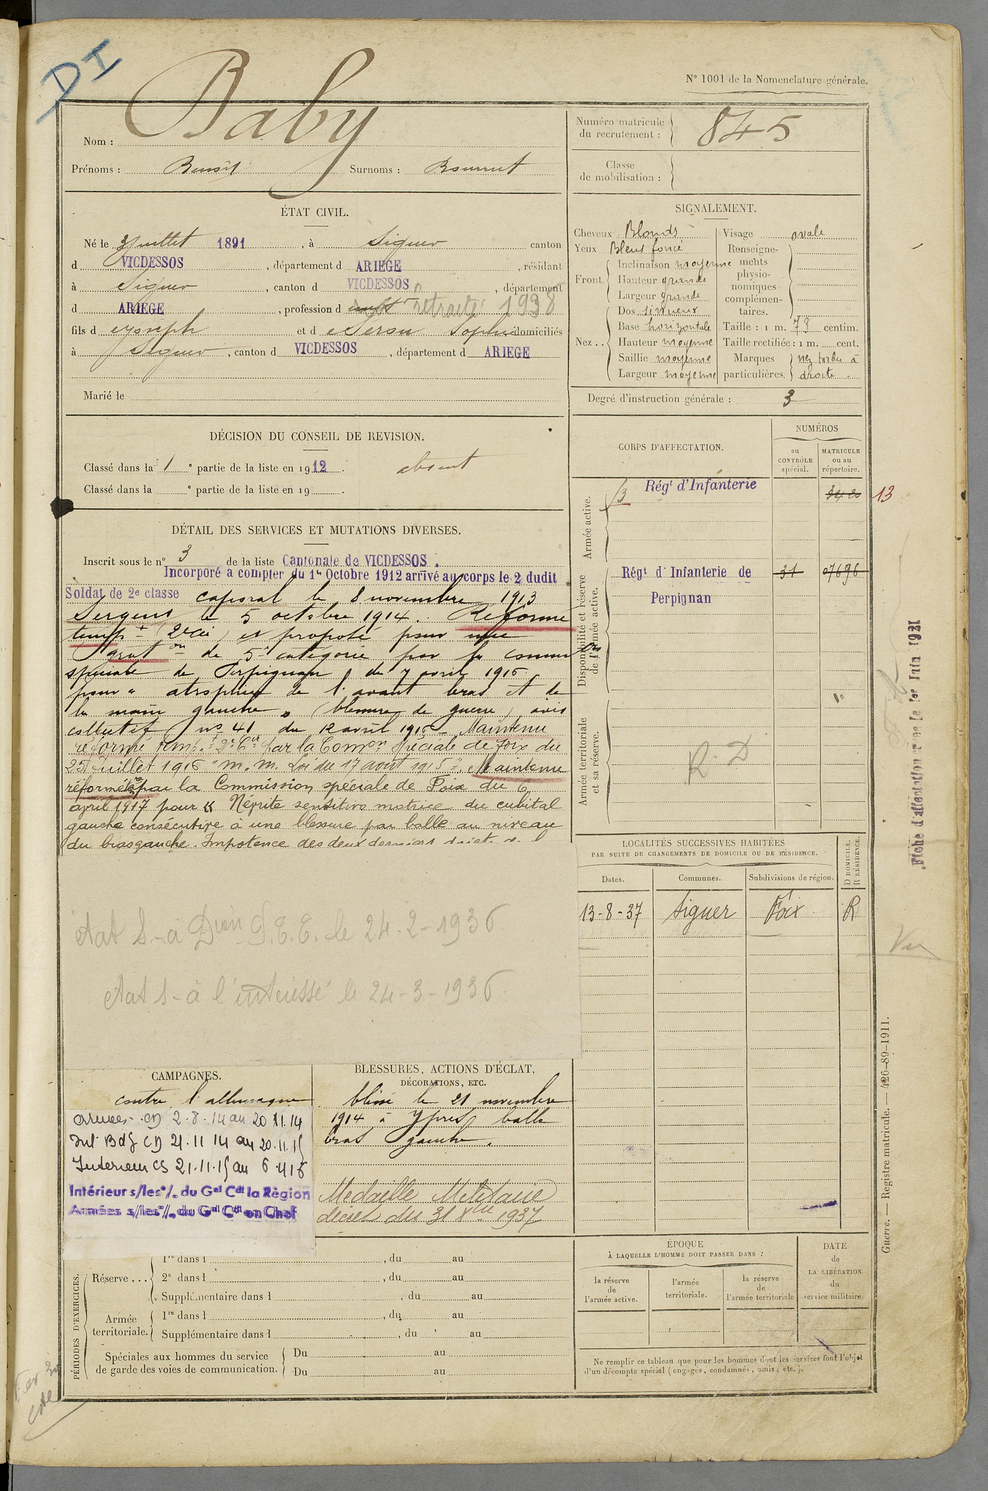 DI
N° 1001 de la Nomenclature générale.
Nom : Baby
Prénoms : Benoît Surnoms : Bourrut
Numéro matricule du recrutement : 845
Classe de mobilisation :
ÉTAT CIVIL.
Né le 3 Juillet 1891, à Siguer canton
d VICDESSOS, département d ARIEGE, résidant
à Siguer, canton d VICDESSOS, département
d ARIEGE, profession d retraité 1938
fils d et d domiciliés
à Siguer, canton d VICDESSOS, département d ARIEGE
Marié le
SIGNALEMENT.
Cheveux Blonds
Yeux Bleus foncé
Front Inclinaison moyenne
Hauteur grande
Largeur grande
Nez... Dos sinueux
Base horizontale
Hauteur moyenne
Saillie moyenne
Largeur moyenne
Visage ovale
Renseignements physionomiques complémentaires.
Taille : 1 m. 73 centim.
Taille rectifiée : 1 m. cent.
Marques particulières. nez tordu à droite.
Degré d'instruction générale : 3
DÉCISION DU CONSEIL DE REVISION.
Classé dans la 1e partie de la liste en 1912. absent
Classé dans la e partie de la liste en 19 .
DÉTAIL DES SERVICES ET MUTATIONS DIVERSES.
Inscrit sous le n° 3 de la liste Cantonale de VICDESSOS.
Incorporé à compter du 1er Octobre 1912 arrivé au corps le 2 dudit
Soldat de 2e classe caporal le 8 novembre 1913
Sergent le 5 octobre 1914. Réformé
temp. (2e Cie) et proposé pour une
grat.on de 5e catégorie par la comm.on
spéciale de Perpignan du 7 avril 1916
pour " atrophie de l'avant bras et de
la main gauche " (blessure de guerre) avis
collectif n° 41 du 12 avril 1916. Maintenu
réformé temp. 2e Cie par la Comon spéciale de Foix du
25 Juillet 1916 "m. m. Loi du 17 août 1915". Maintenu
réformé par la Commission spéciale de Foix du 6
avril 1917 pour "Névrite sensitivo motrice du cubital
gauche consécutive à une blessure par balle au niveau
du bras gauche. Impotence des deux derniers doigts
Etat S. à Dion P.E.E. le 24-2-1936
Etat S- à l'intéressé le 24-3-1936
CORPS D'AFFECTATION.
NUMÉROS
au CONTRÔLE spécial.
MATRICULE ou au répertoire.
Armée active.
Régt d'Infanterie
13
Disponibilité et réserve de l'armée active.
Régt d'Infanterie de 31 07696
Perpignan
Armée territoriale et sa réserve.
R.D
LOCALITÉS SUCCESSIVES HABITÉES
PAR SUITE DE CHANGEMENTS DE DOMICILE OU DE RÉSIDENCE.
Dates. Communes. Subdivisions de région. D DOMICILE, R RÉSIDENCE.
13-8-37 Siguer Foix R
CAMPAGNES.
contre l'allemagne
armées CD 2-8-14 au 20 11.14
Int Bdg CD 21.11 14 au 20.11.15
Interieur CS 21.11.15 au 6 4 16
Intérieur s/les °/. du Gal Cdt la Région
Armées s/les °/. du Gal Cdt en Chef
BLESSURES, ACTIONS D'ÉCLAT,
DÉCORATIONS, ETC.
blessé le 21 novembre
1914 à Ypres balle
bras gauche.
Médaille Militaire
décret du 31 Xbre 1937
PÉRIODES D'EXERCICES.
Réserve... 1re dans l , du au
2e dans l , du au
Supplémentaire dans l , du au
Armée territoriale. 1re dans l , du au
Supplémentaire dans l , du au
Spéciales aux hommes du service de garde des voies de communication. Du au
Du au
ÉPOQUE
À LAQUELLE L'HOMME DOIT PASSER DANS :
la réserve de l'armée active.
l'armée territoriale.
la réserve de l'armée territoriale
DATE de LA LIBÉRATION du service militaire.
Ne remplir ce tableau que pour les hommes dont les services font l'objet
d'un décompte spécial (engagés, condamnés, omis, etc.).
Fiche d'affectation le 1er Juin 1921
Vu
Guerre. — Registre matricule. — 426-89-1911.